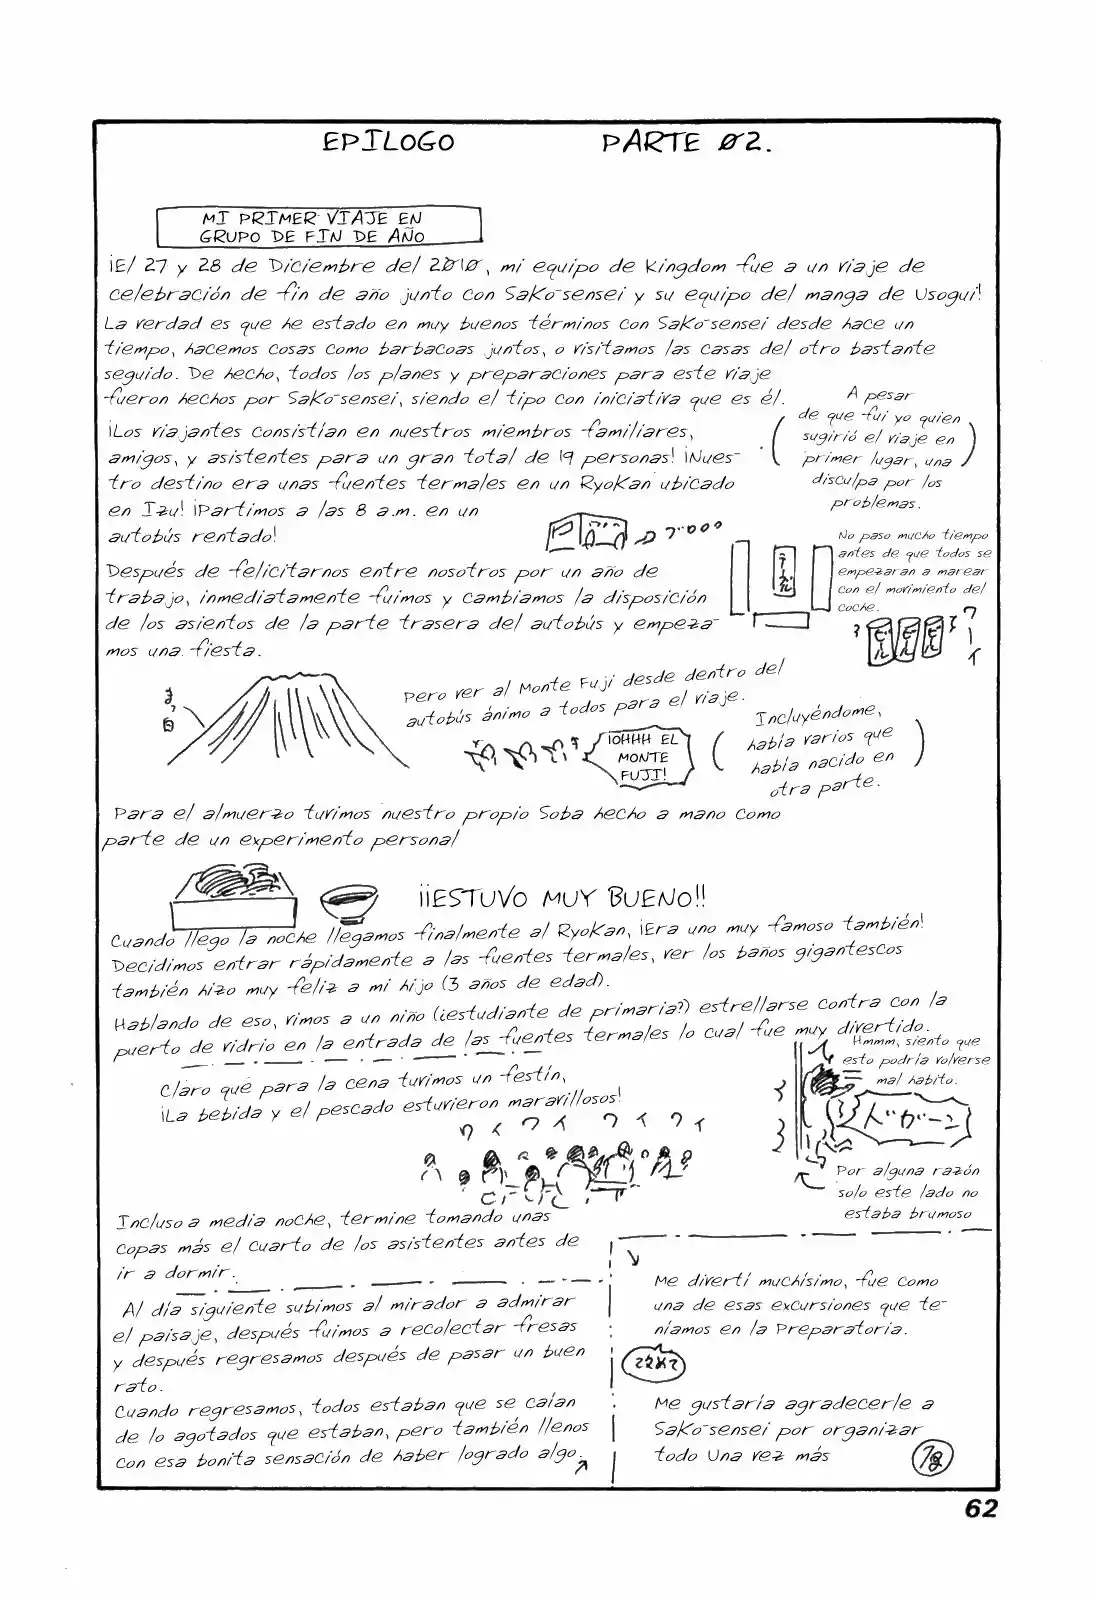 EPILOGO PARTE 02.
MI PRIMER VIAJE EN
GRUPO DE FIN DE AÑO
¡El 27 y 28 de Diciembre del 2010, mi equipo de Kingdom fue a un viaje de
celebración de fin de año junto con Sako-sensei y su equipo del manga de Usogui!
La verdad es que he estado en muy buenos términos con Sako-sensei desde hace un
tiempo, hacemos cosas como barbacoas juntos, o visitamos las casas del otro bastante
seguido. De hecho, todos los planes y preparaciones para este viaje
fueron hechos por Sako-sensei, siendo el tipo con iniciativa que es él.
A pesar
de que fui yo quien
sugirió el viaje en
primer lugar, una
disculpa por los
problemas.
¡Los viajantes consistían en nuestros miembros familiares,
amigos, y asistentes para un gran total de 19 personas! ¡Nues-
tro destino era unas fuentes termales en un Ryokan ubicado
en Izu! ¡Partimos a las 8 a.m. en un
autobús rentado!
No paso mucho tiempo
antes de que todos se
empezaran a marear
con el movimiento del
coche.
Después de felicitarnos entre nosotros por un año de
trabajo, inmediatamente fuimos y cambiamos la disposición
de los asientos de la parte trasera del autobús y empeza-
mos una fiesta.
Pero ver al Monte Fuji desde dentro del
autobús ánimo a todos para el viaje.
¡OHHH EL
MONTE
FUJI!
Incluyéndome,
había varios que
había nacido en
otra parte.
Para el almuerzo tuvimos nuestro propio Soba hecho a mano como
parte de un experimento personal
¡¡ESTUVO MUY BUENO!!
Cuando llego la noche llegamos finalmente al Ryokan, ¡Era uno muy famoso también!
Decidimos entrar rápidamente a las fuentes termales, ver los baños gigantescos
también hizo muy feliz a mi hijo (3 años de edad).
Hablando de eso, vimos a un niño (¿estudiante de primaria?) estrellarse contra con la
puerto de vidrio en la entrada de las fuentes termales lo cual fue muy divertido.
Hmmm, siento que
esto podría volverse
mal habito.
Claro que para la cena tuvimos un festín,
¡La bebida y el pescado estuvieron maravillosos!
ワイワイワイワイ
Por alguna razón
solo este lado no
estaba brumoso
Incluso a media noche, termine tomando unas
copas más el cuarto de los asistentes antes de
ir a dormir.
Al día siguiente subimos al mirador a admirar
el paisaje, después fuimos a recolectar fresas
y después regresamos después de pasar un buen
rato.
Cuando regresamos, todos estaban que se caían
de lo agotados que estaban, pero también llenos
con esa bonita sensación de haber logrado algo.
Me divertí muchísimo, fue como
una de esas excursiones que te-
níamos en la Preparatoria.
Me gustaría agradecerle a
Sako-sensei por organizar
todo Una vez más
62